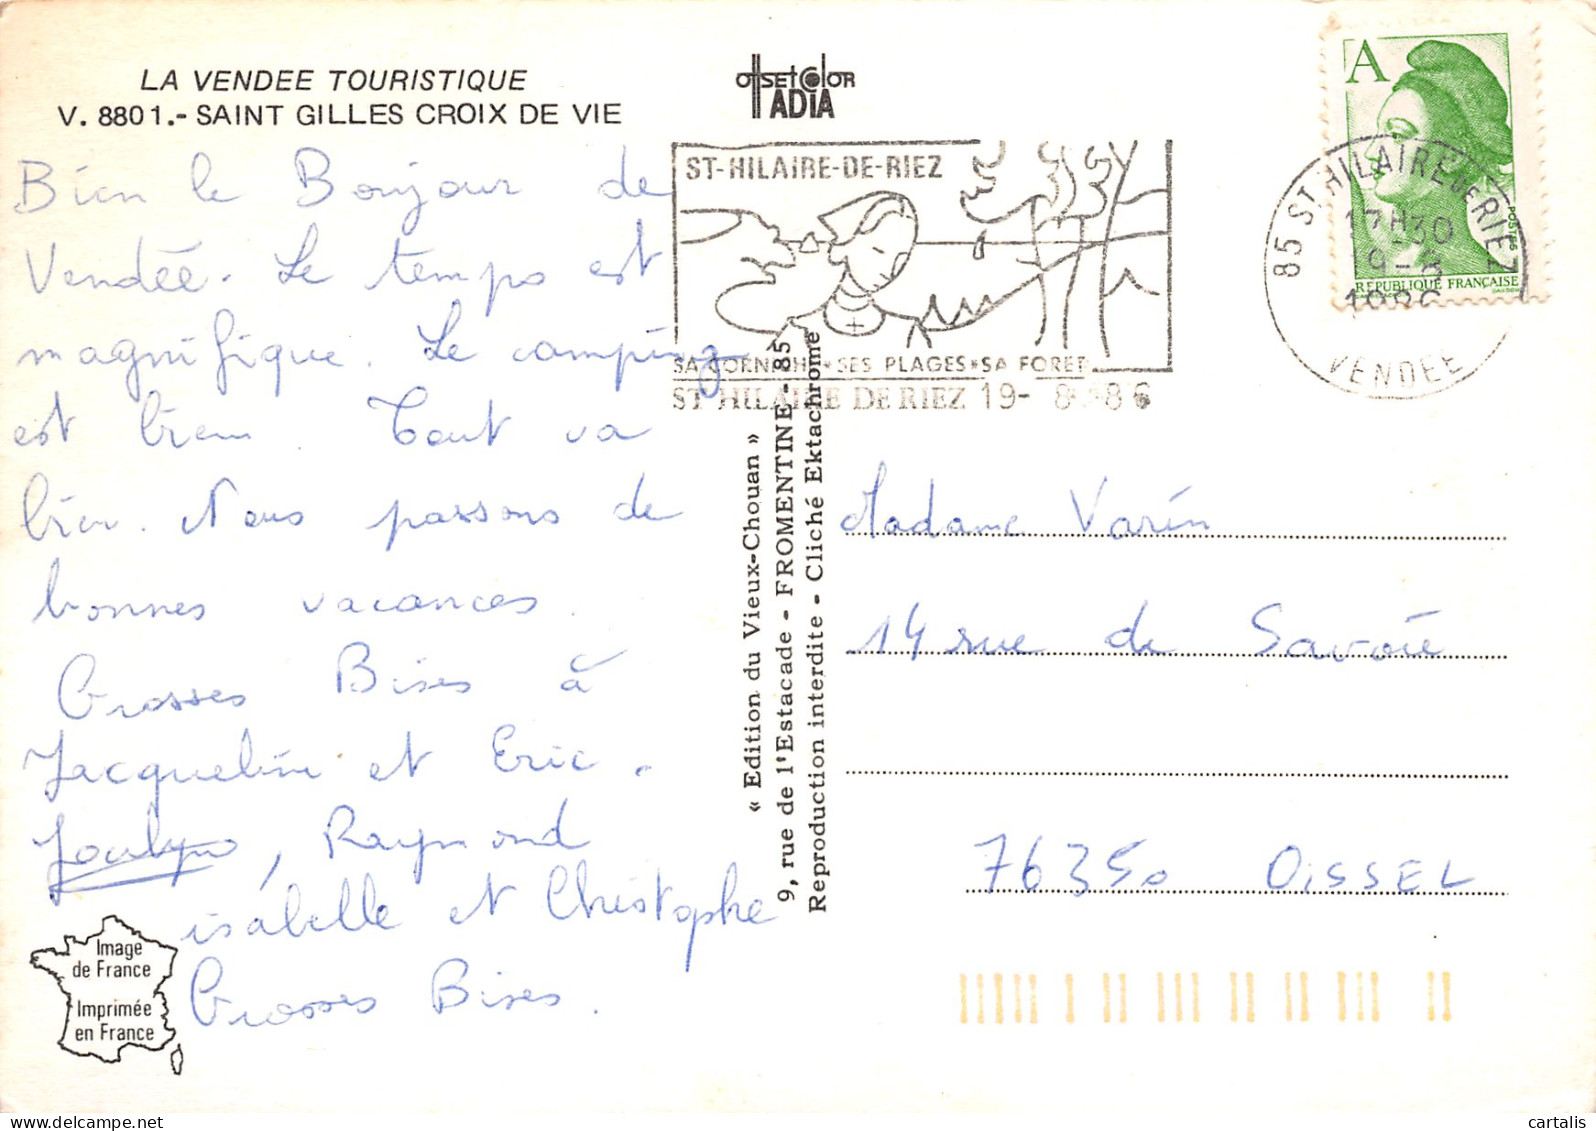 LA VENDEE TOURISTIQUE
V. 8801.- SAINT GILLES CROIX DE VIE
offset color
ADIA
Bien le Bonjour de
Vendée. Le temps est
magnifique. Le camping
est bien. Tout va
bien. Nous passons de
bonnes vacances.
Grosses Bises à
Jacqueline et Eric.
Jocelyne, Raymond
isabelle et Christophe
Grosses Bises.
Image
de France
Imprimée
en France
« Edition du Vieux-Chouan »
9, rue de l'Estacade - FROMENTINE - 85
Reproduction interdite - Cliché Ektachrome
ST-HILAIRE-DE-RIEZ
SA CORNICHE * SES PLAGES * SA FORET
ST HILAIRE DE RIEZ 19- 8 -86
85 ST HILAIRE DE RIEZ
17H30
19-8
1986
VENDEE
A
POSTES
REPUBLIQUE FRANÇAISE
Madame Varin
14 rue de Savoie
76350 OiSSEL
cartalis